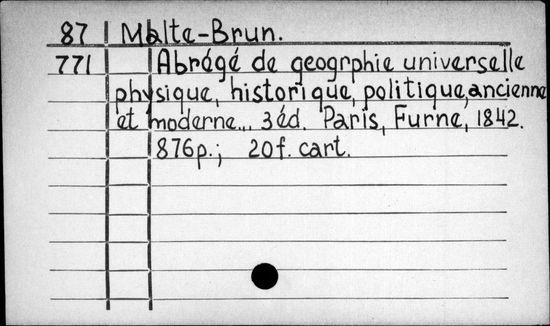 87 Malte-Brun.
771 Abrégé de geogrphie universelle
physique, historique, politique, ancienne
et moderne... 3 éd. Paris, Furne, 1842.
876p.; 20f. cart.